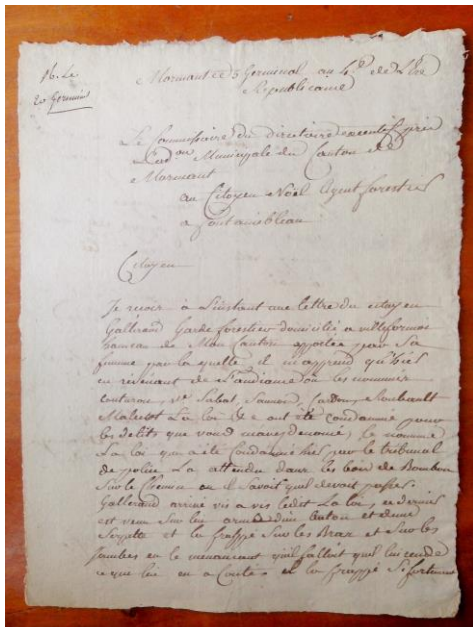 R. Le
20 Germinal
Mormant ce 5 Germinal an 4.e de L'Ere
Republicaine
Le Commissaire du directoire executif près
L'adon Municipale du Canton de
Mormant
au Citoyen Noël Agent forestier
a fontainebleau
Citoyen
Je reçois à L'instant une lettre du citoyen
Gallerand Garde forestier domicilié a villefermoy
hameau de Mon Canton apportée par Sa
femme par la quelle il m'apprend qu'hier
en revenant de L'audiance où les nommés
Sabat, Roubault
Malabot La loi & ont été condamnés pour
les délits que vous m'avez denoncé, le nommé
La loi qui a été condamné hier par le tribunal
de police La attendu dans les bois de Bombon
Sur le chemin ou il Savoit quil devoit passer.
Gallerand arrivé vis a vis ledit La loi, ce dernier
est venu Sur lui armé d'un baton et d'une
Serpette et la frappé Sur les Bras et Sur les
jambes en le menaçant quil falloit quil lui rende
ce que lui en a Couté, il la frappé Si fortement